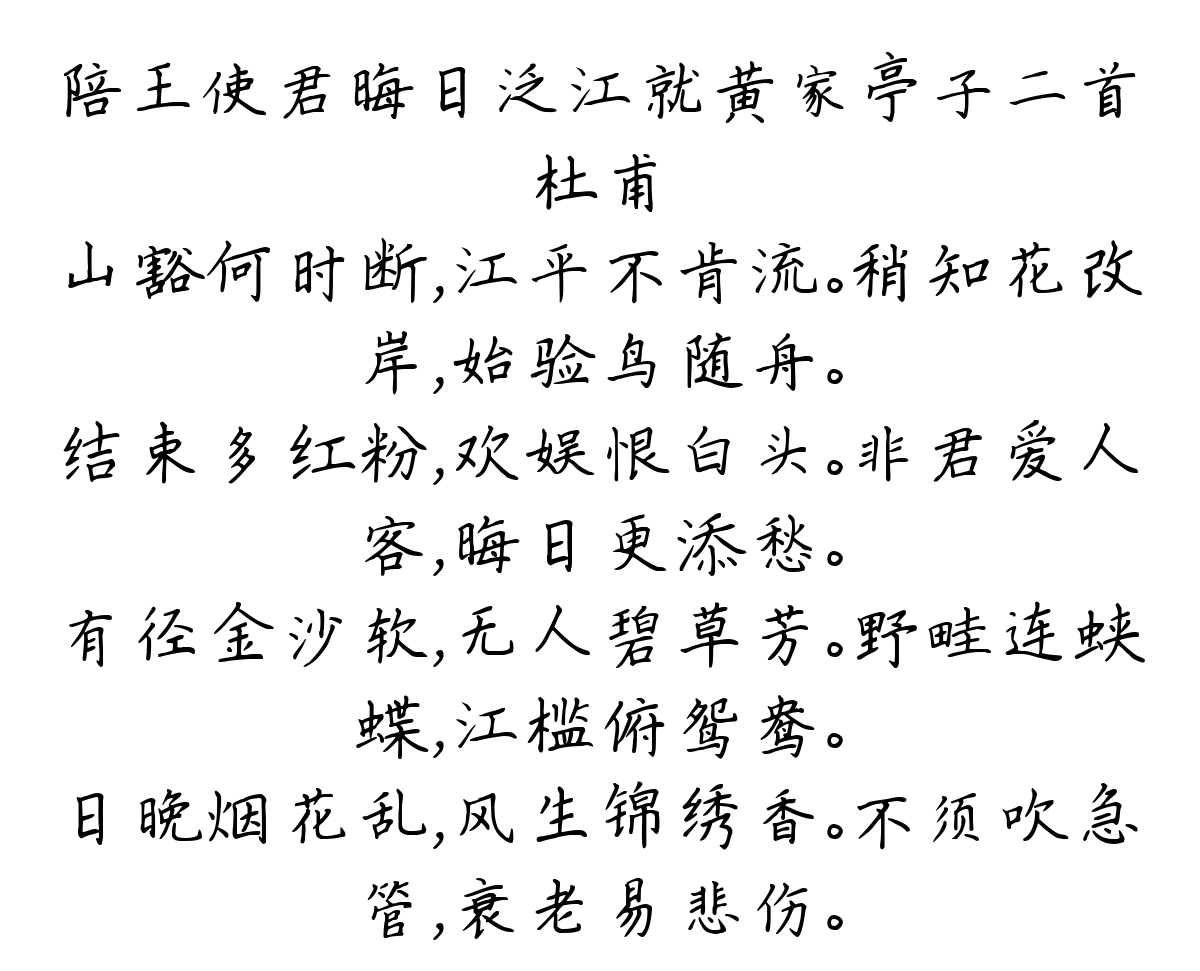 陪王使君晦日泛江就黄家亭子二首
杜甫
山豁何时断,江平不肯流。稍知花改
岸,始验鸟随舟。
结束多红粉,欢娱恨白头。非君爱人
客,晦日更添愁。
有径金沙软,无人碧草芳。野畦连蛱
蝶,江槛俯鸳鸯。
日晚烟花乱,风生锦绣香。不须吹急
管,衰老易悲伤。